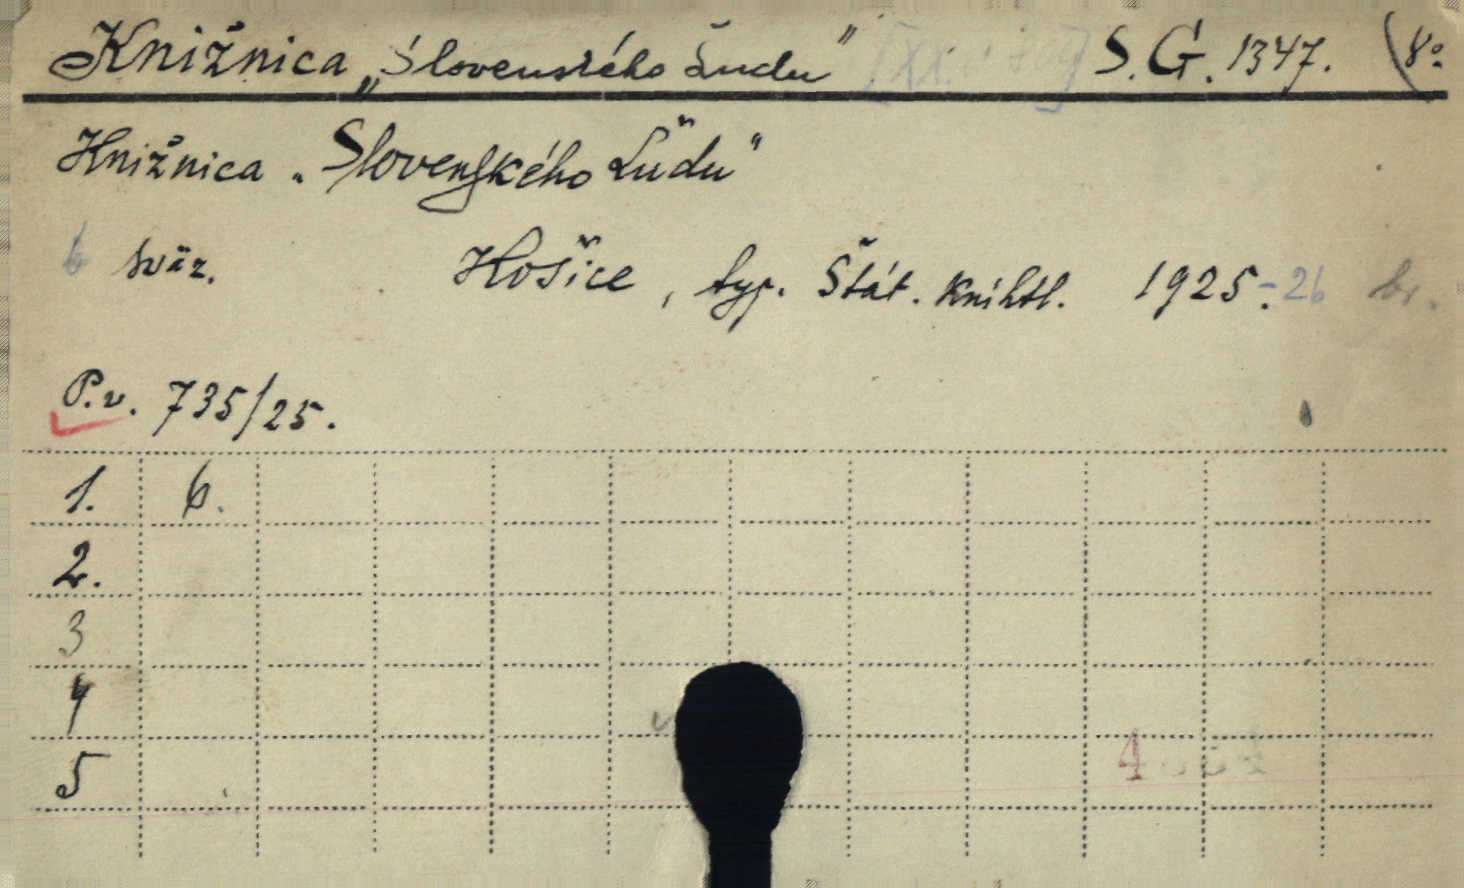 Knižnica „Slovenského Ľudu" S.G. 1347. (8°
Knižnica „Slovenského Ľudu"
6 sväz. Košice, typ. Štát. Kníhtl. 1925.-26 br.
P.v. 735/25.
1. 6.
2.
3
4
5
4